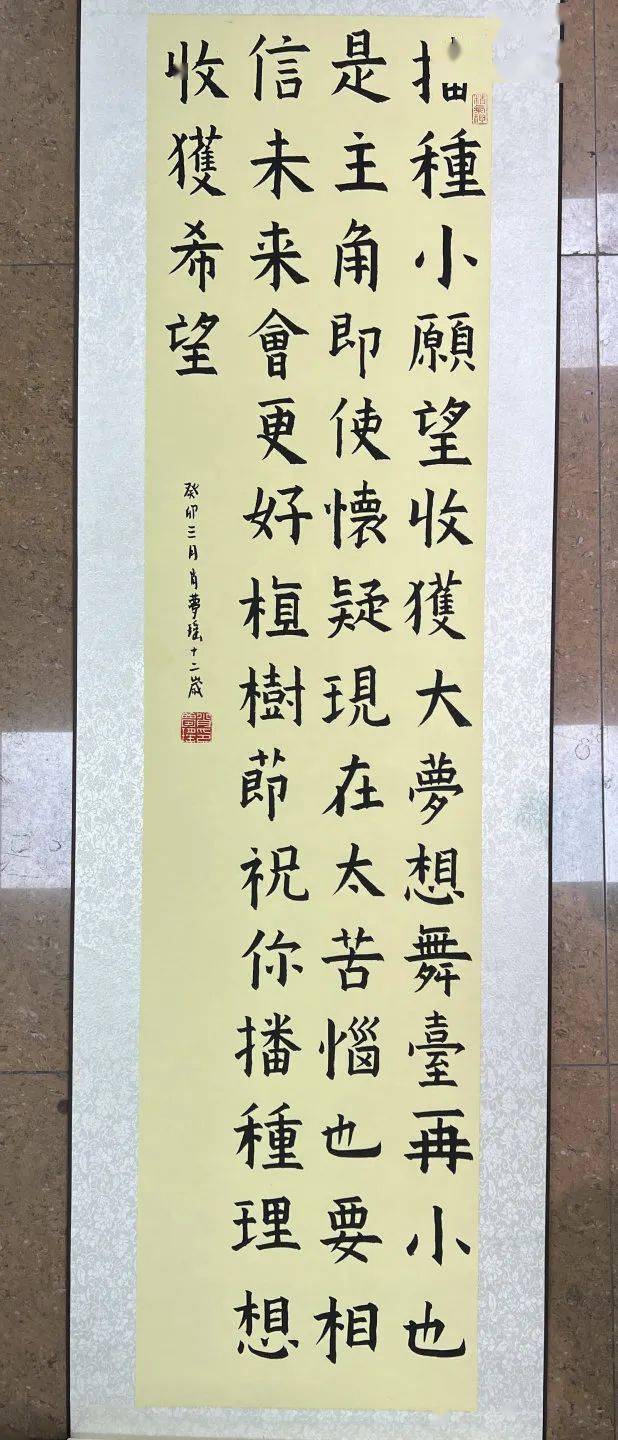 播種小願望收獲大夢想舞臺再小也
是主角即使懷疑現在太苦惱也要相
信未来會更好植樹節祝你播種理想
收獲希望
癸卯三月肖夢瑤十二歲